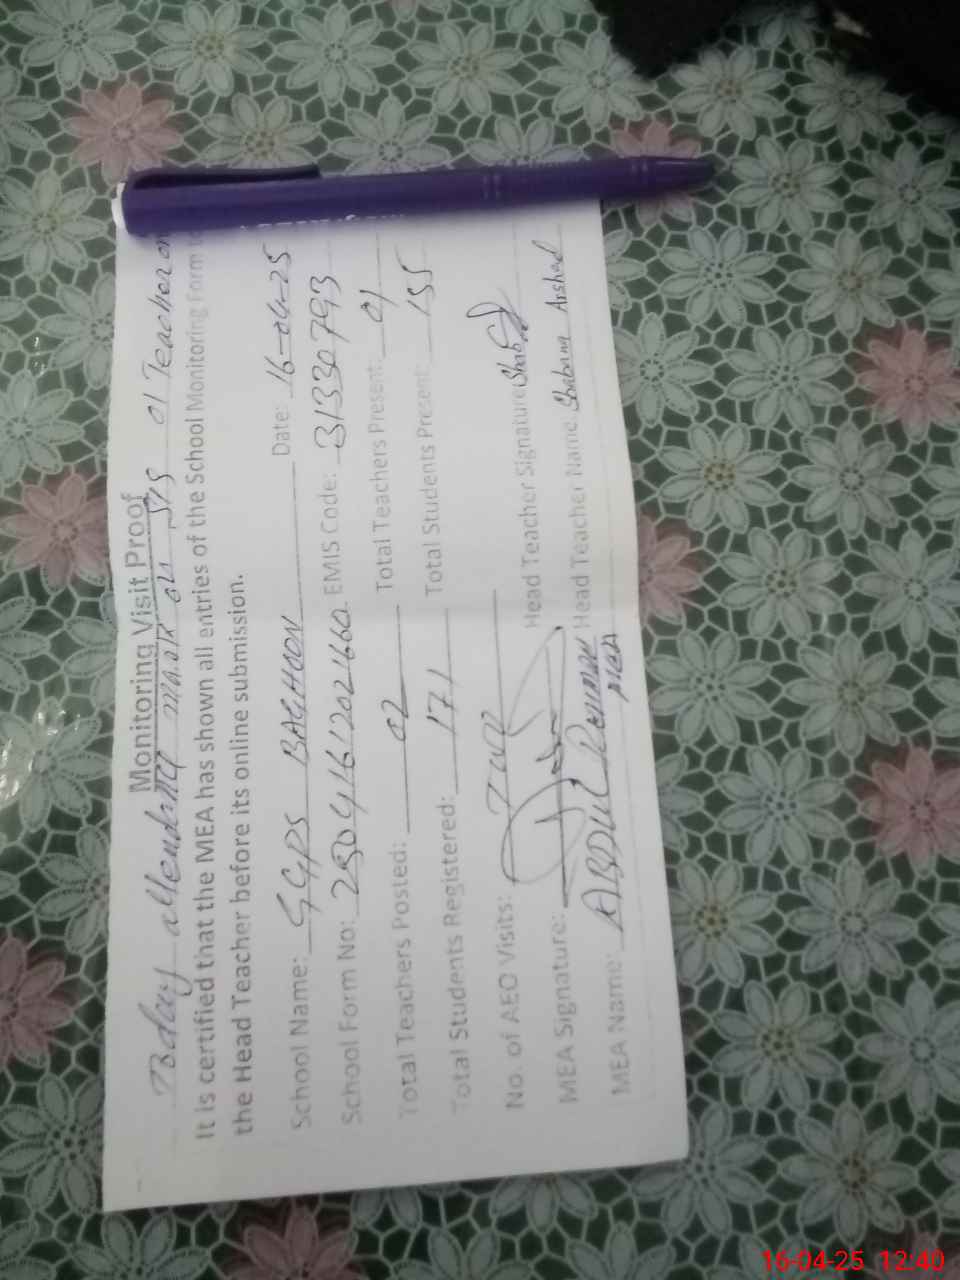 Monitoring Visit Proof
Today attendance mark on SIS 01 Teacher on
It is certified that the MEA has shown all entries of the School Monitoring Form to
the Head Teacher before its online submission.
School Name: GGPS BAGHOON Date: 16-04-25
School Form No: EMIS Code: 31330793
Total Teachers Posted: 02 Total Teachers Present: 01
Total Students Registered: 171 Total Students Present: 155
No. of AEO Visits:
MEA Signature: Head Teacher Signature:
MEA Name: ABDUL Rehman Head Teacher Name: Shabana Arshad
MEA
16-04-25 12:40